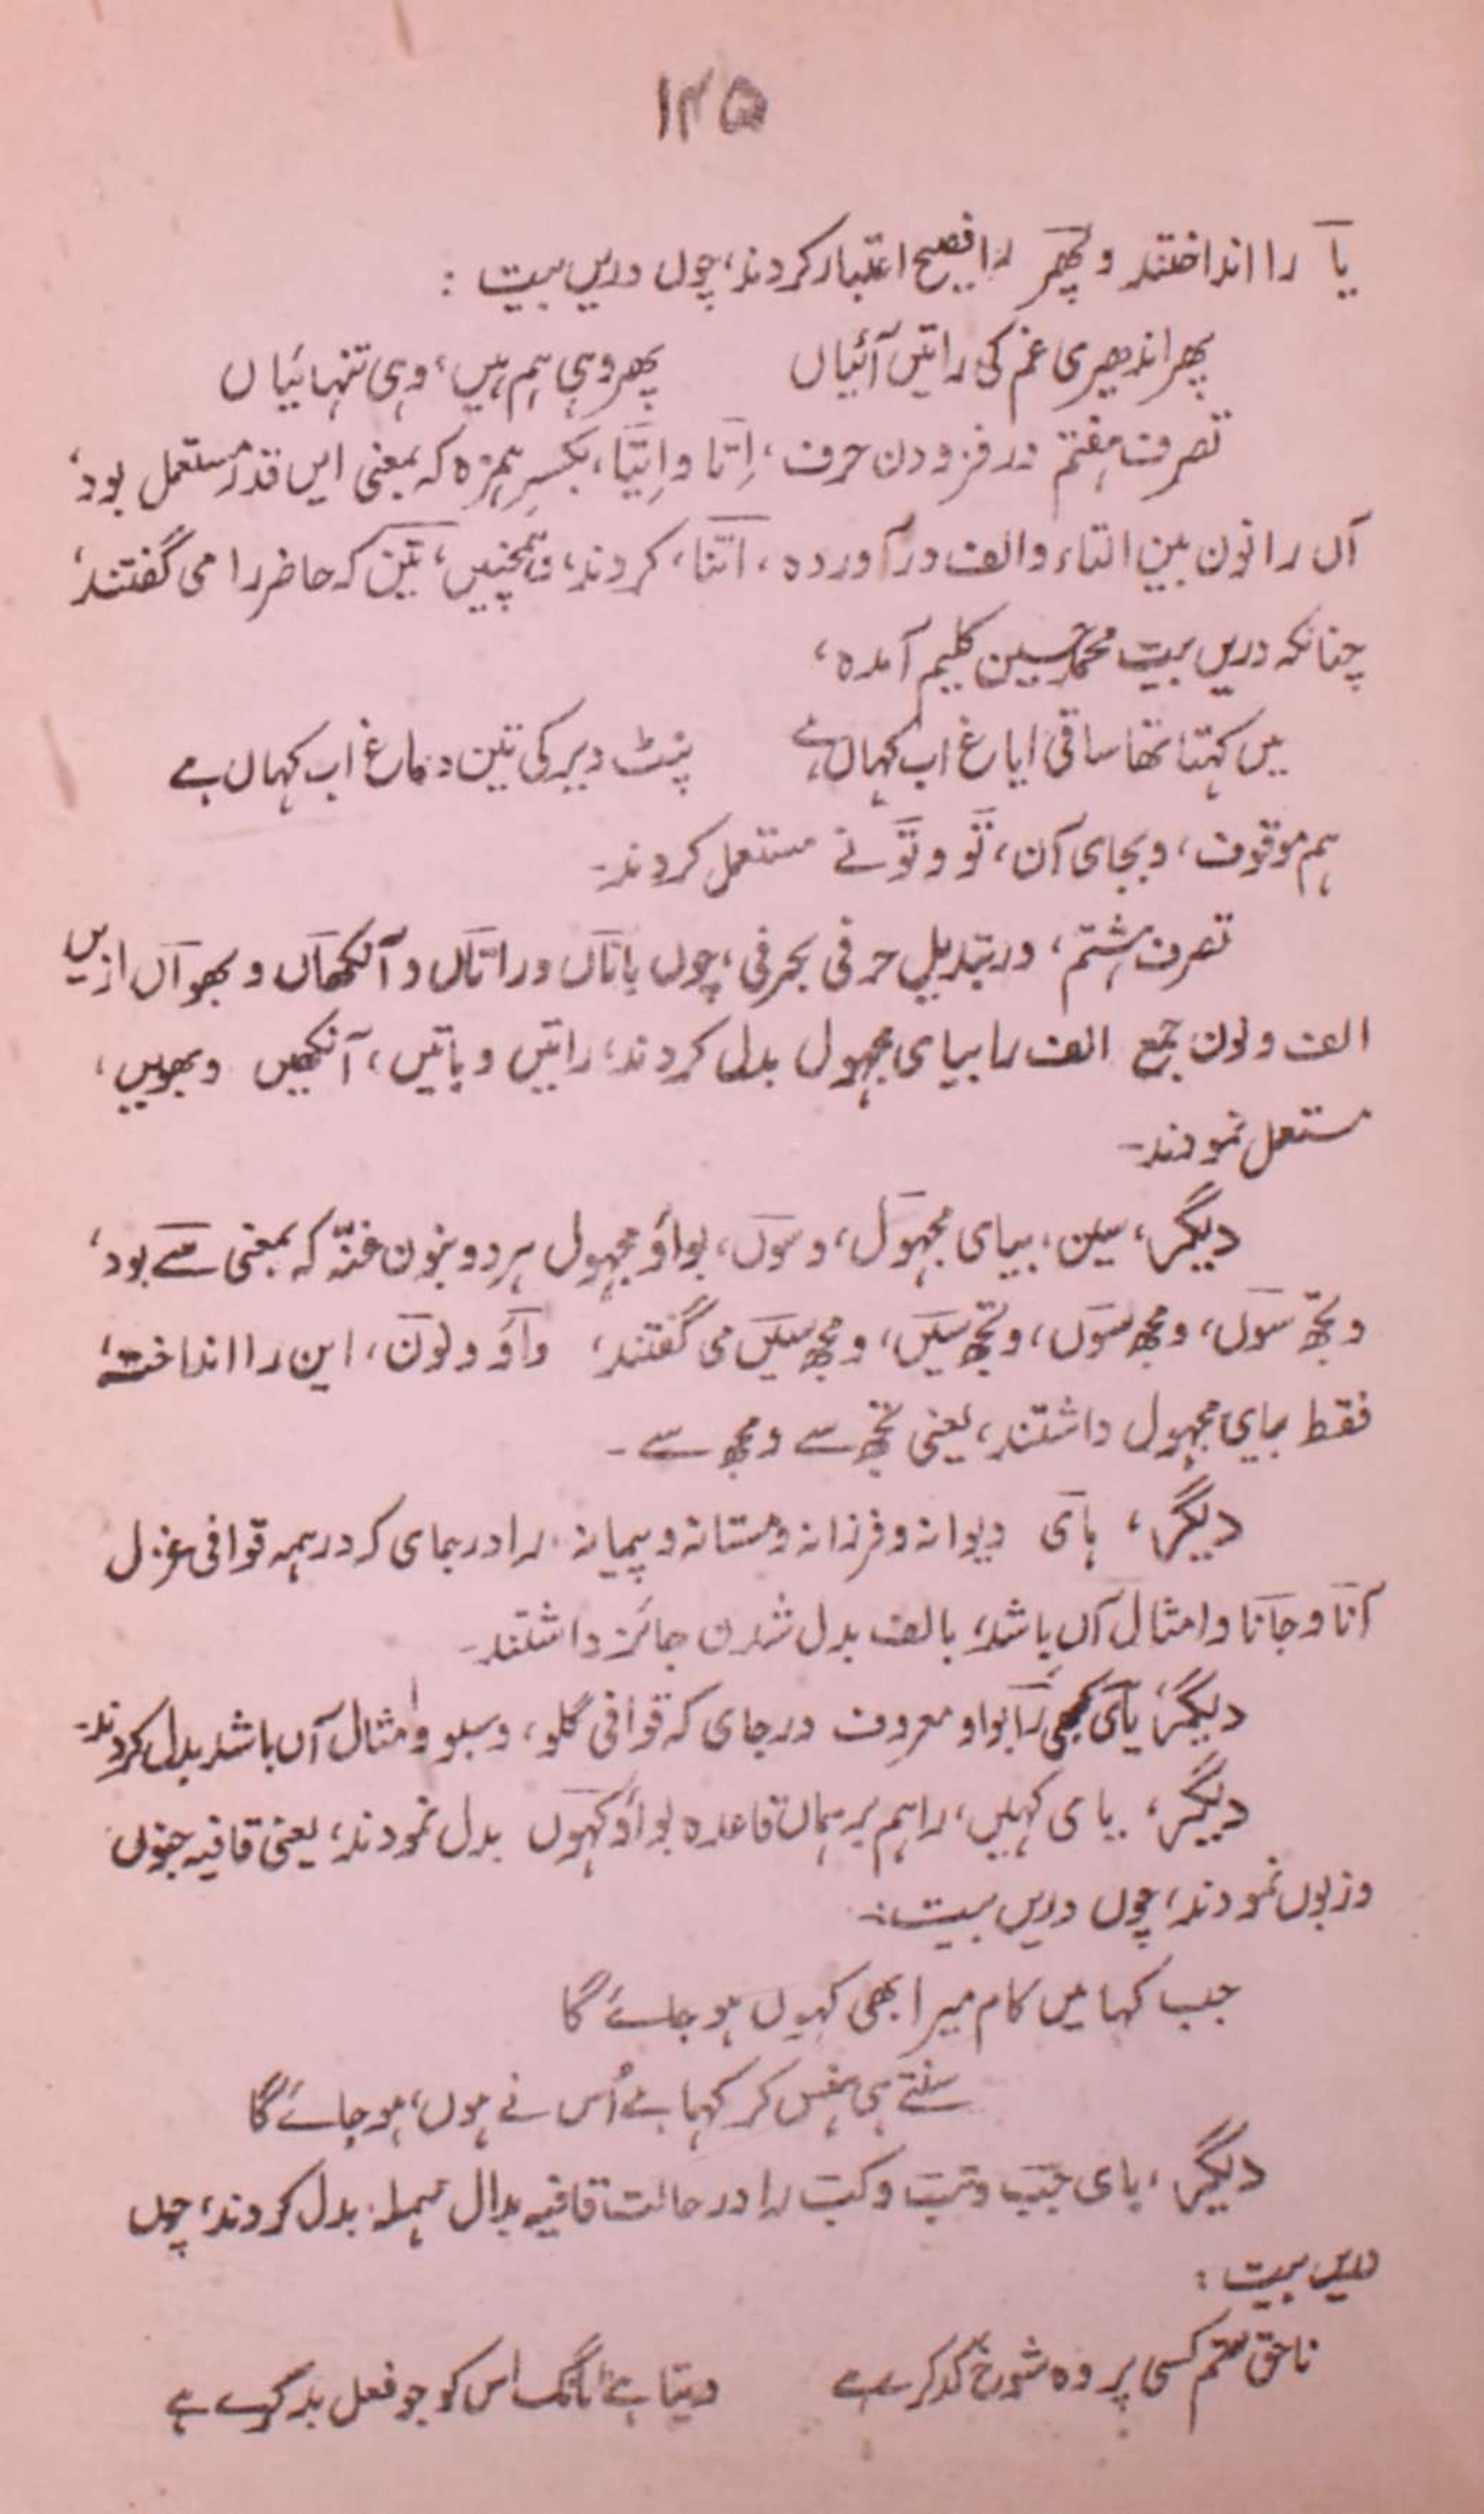 ۱۴۵
یا را انداختند و پھر را فصیح اعتبار کردند، چوں دریں بیت :
پھر اندھیری غم کی راتیں آئیاں پھر وہی ہم ہیں، وہی تنہائیاں
تصرف ہفتم در فزودن حرف، اِتّا و اِتیّا، بکسرِ ہمزہ کہ بمعنی ایں قدر مستعمل بود،
آں را نون بین التاء و الف در آوردہ، اتنا، کردند، وہمچنیں، تیں کہ حاضر را می گفتند،
چنانکہ دریں بیت محمد حسین کلیم آمدہ،
میں کہتا تھا ساقی ایاغ اب کہاں ہے نپٹ دیر کی تیں دماغ اب کہاں ہے
ہم موقوف، و بجای آن، تو و تو نے مستعمل کردند۔
تصرف ہشتم، در تبدیلِ حرفی بحرفی، چوں باتاں و راتاں و آنکھاں و بھواں ازیں
الف و نون جمع الف را بیای مجہول بدل کردند، راتیں و باتیں، آنکھیں و بھویں،
مستعمل نمودند۔
دیگر، سیں، بیای مجہول، و سوں، بواؤ مجہول ہر دو بنون غنّہ کہ بمعنی سے بود،
و تجھ سوں، و مجھ سوں، و تجھ سیں، و مجھ سیں می گفتند، واؤ و نون، این را انداختہ،
فقط بیای مجہول داشتند، یعنی تجھ سے و مجھ سے۔
دیگر، ہای دیوانہ و فرزانہ و مستانہ و پیمانہ را در بجای کہ در ہمہ قوافی غزل
آنا و جانا و امثال آں باشد، بالف بدل شدن جائز داشتند۔
دیگر، یای کبھی را بواو معروف در جای کہ قوافی گلو، و سبو و امثال آں باشد بدل کردند۔
دیگر، یای کہیں، را ہم بر ہماں قاعدہ بواؤ کہوں بدل نمودند، یعنی قافیہ جنوں
و زبوں نمودند، چوں دریں بیت:
جب کہا میں کام میرا بھی کہوں ہو جائے گا
سنتے ہی ہنس کر کہا ہے اُس نے ہوں، ہو جائے گا
دیگر، بای جب و تب و کب را در حالت قافیہ بدال مہملہ بدل کردند، چوں
دریں بیت :
ناحق ستم کسی پر وہ شوخ کد کرے ہے دیتا ہے ٹانگ اس کو جو فعل بد کرے ہے